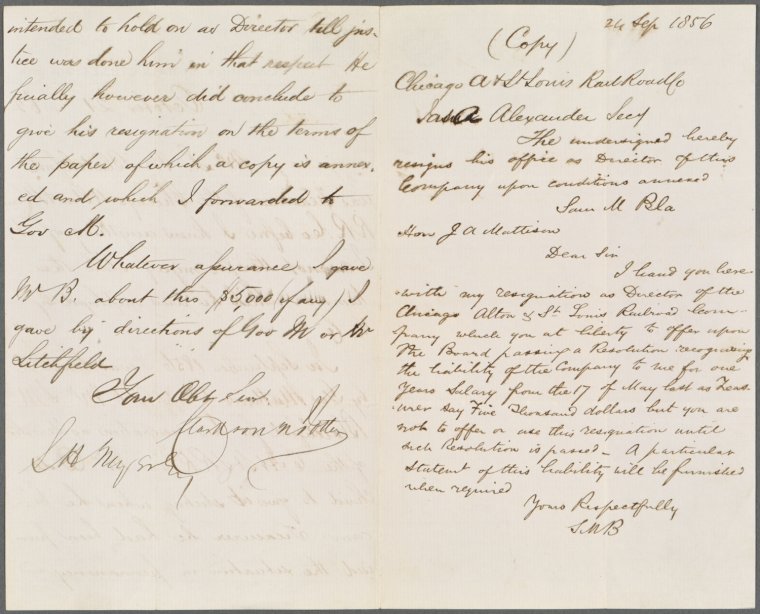 intended to hold on as Director till jus-
tice was done him in that respect He
finally however did conclude to
give his resignation on the terms of
the paper of which a copy is annex-
ed and which I forwarded to
Gov M.
Whatever assurance I gave
Mr B. about this $5,000 (if any) I
gave by directions of Gov M or Mr
Litchfield
Your Obt Sevt
Clarkson N Potter
S H
24 Sep 1856
(Copy)
Chicago A & St Louis Rail Road Co
Alexander Secy
The undersigned hereby
resigns his office as Director of this
Company upon conditions annexed
Sam M Bla
Hon J A Mattison
Dear Sir
I hand you here-
with my resignation as Director of the
Chicago Alton & St Louis Railroad Com-
pany which you at liberty to offer upon
the Board passing a Resolution recognising
the liability of the Company to me for one
Years Salary from the 17 of May last as Treas-
urer say Five Thousand dollars but you are
not to offer or use this resignation until
such Resolution is passed – A particular
Statement of this liability will be furnished
when required
Yours Respectfully
S M B